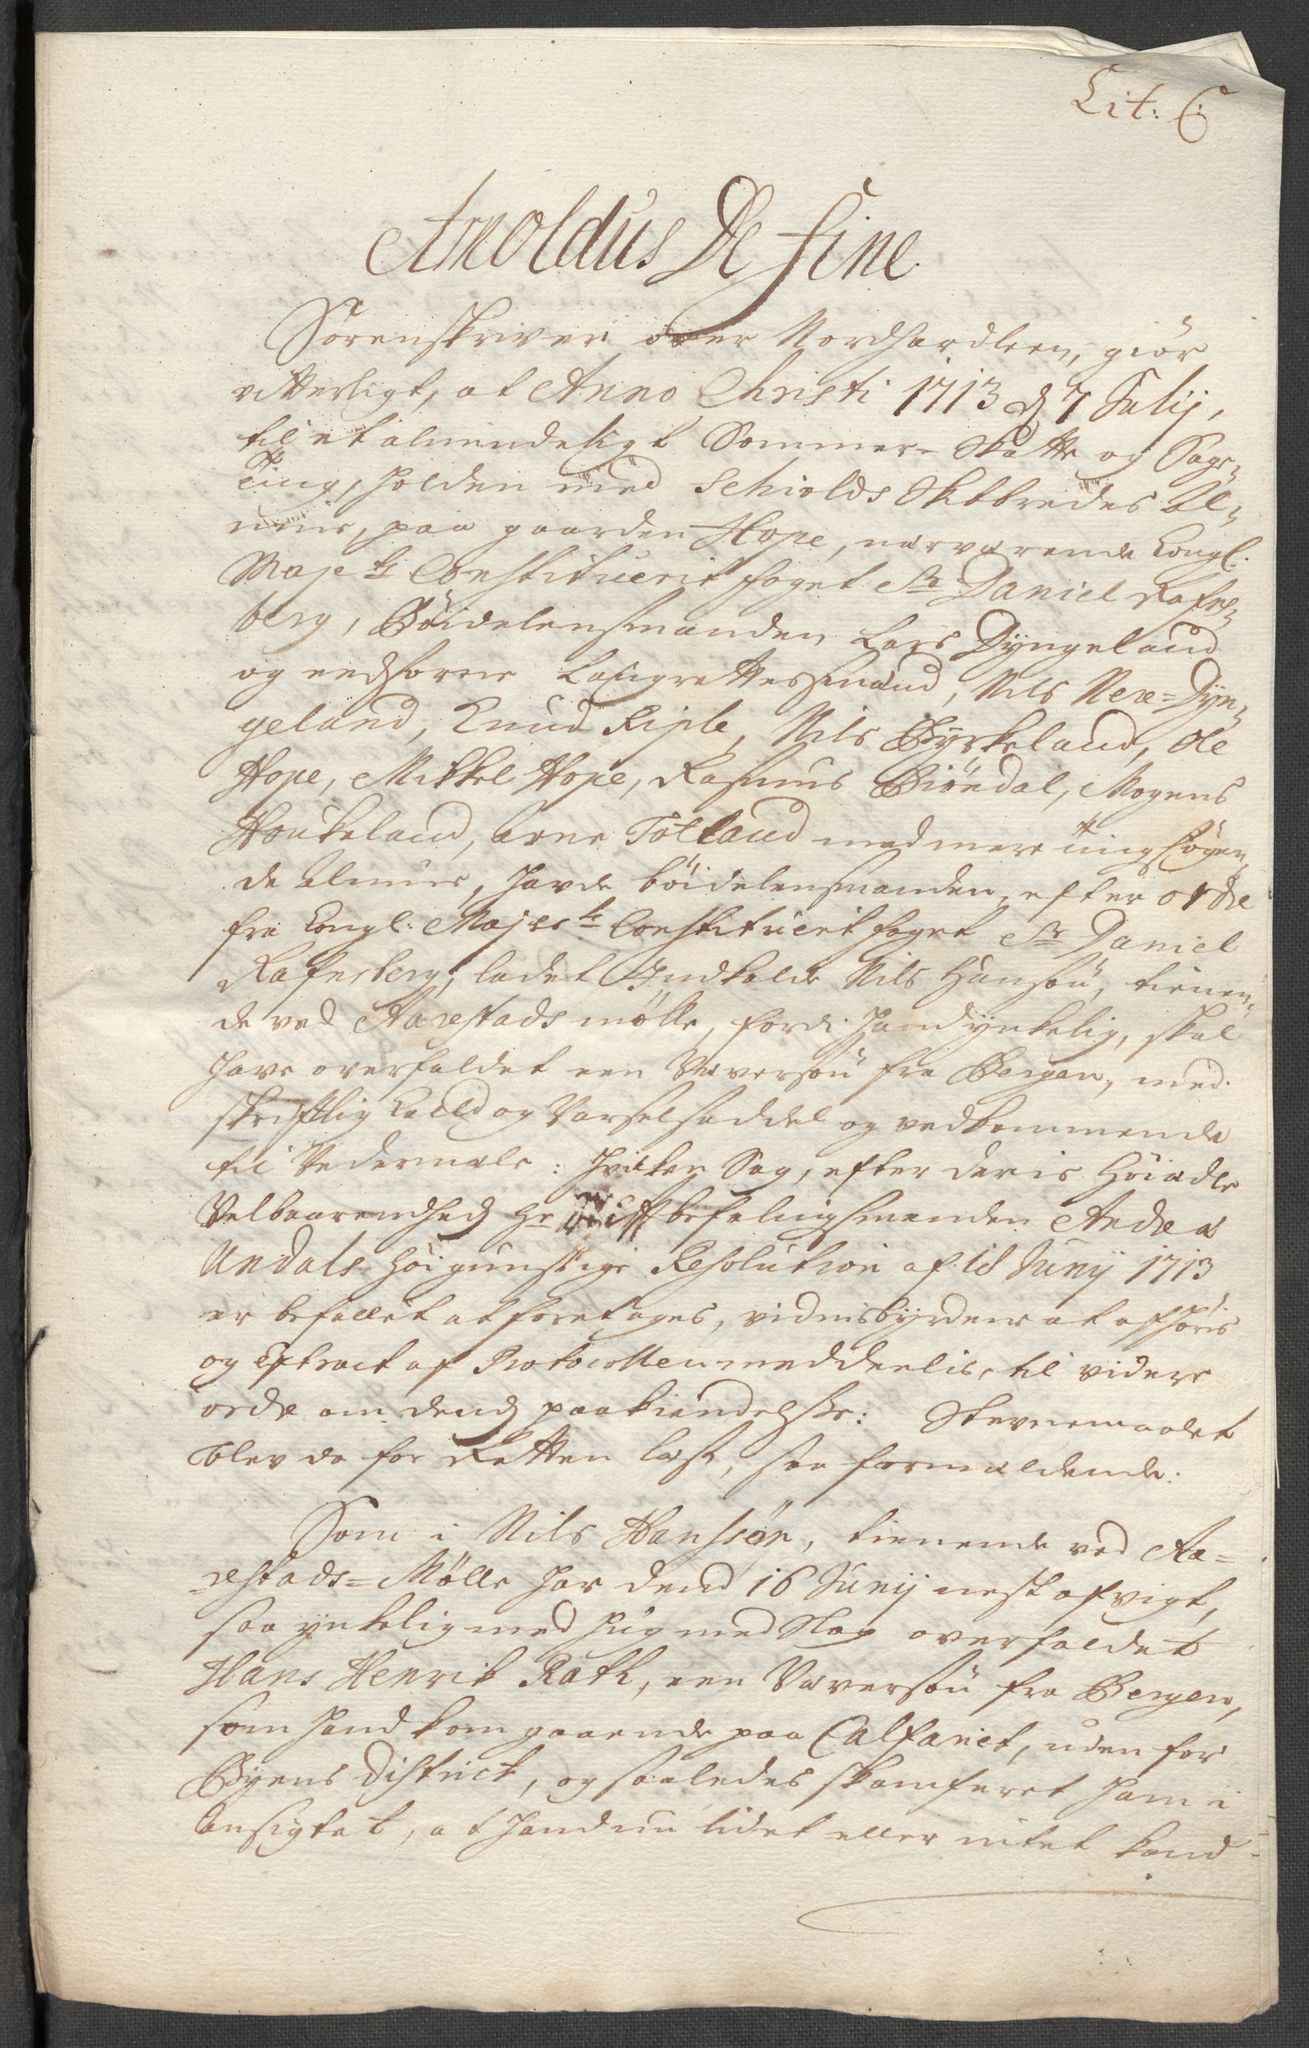 Lit: C
Arnoldus De Fine
Sorenskriver over Nordhordleen, giør
vitterligt, at Anno Christi 1713 d 7 Julij,
til et almindeligt Sommer- Skatte og Sage-
Ting, holden med Schiolds Skibredes Al-
mue, paa gaarden Hope, nærværende Kongl.
Majets Constituerit foget Sr Daniel Rafns-
berg, Bøidelensmanden Lars Dyngeland
og eedsorne Laugrettesmænd, Nils Nere-Dyn-
geland, Knud Riple, Nils Byrkeland, Ole
Hope, Mikkel Hope, Rasmus Biøndal, Mogens
Houkeland, Arne Totland med mere tingsøgen-
de Almue, hafde bøidelensmanden, efter ordre
fra Kongl: Majests Constituerit foget Sr Daniel
Rafnsberg, ladet Indkalde Nils Hansøn, tienen-
de ved Aarestads mølle, fordi hand ynkelig, skal
have overfaldet een Væversøn fra Bergen, med
skriftlig Kald og Varselseddel og vedkommende
til Vedermæle: hvilken Sag, efter deris Høiædle
Velbaarenhed Hr Stiftbefalingsmanden Andreæ
Undals Høigunstige Resolution af 18 Junij 1713
er befallet at foretages, vidnisbyrdene at afhøris
og Extract af Protocollen meddeelis, til videre
ordre om dend paakiendelse: Stevnemaalet
blev da for Retten læst, saa formældende:
Som i Nils Hanssøn, tienende ved Aa-
restads-Mølle har dend 16 Junij nest afvigt,
saa ynkelig med hug med Slag overfaldet
Hans Henrik Rath, een Væversøn fra Bergen,
som hand kom gaaende paa Calfaret, uden for
Byens District, og saaledes skamferet ham i
Ansigtet, at hand nu lidet eller intet kand